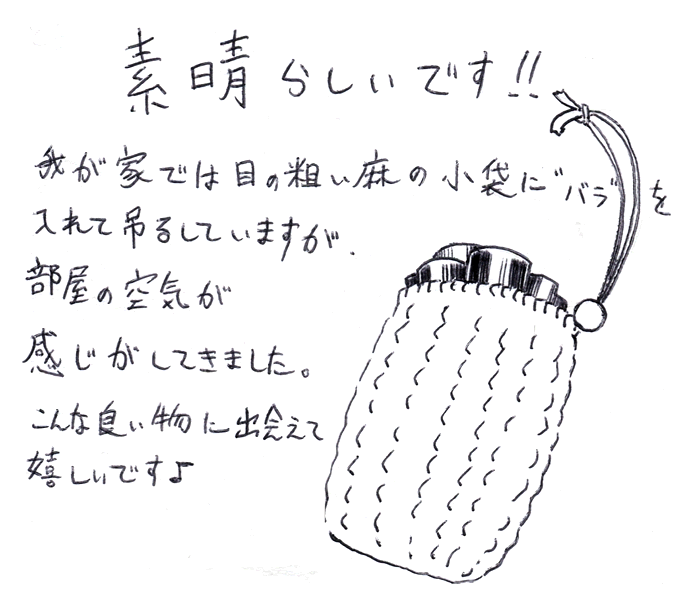 素晴らしいです!!
我が家では目の粗い麻の小袋に"バラ"を
入れて吊るしていますが、
部屋の空気が
感じがしてきました。
こんな良い物に出会えて
嬉しいですよ